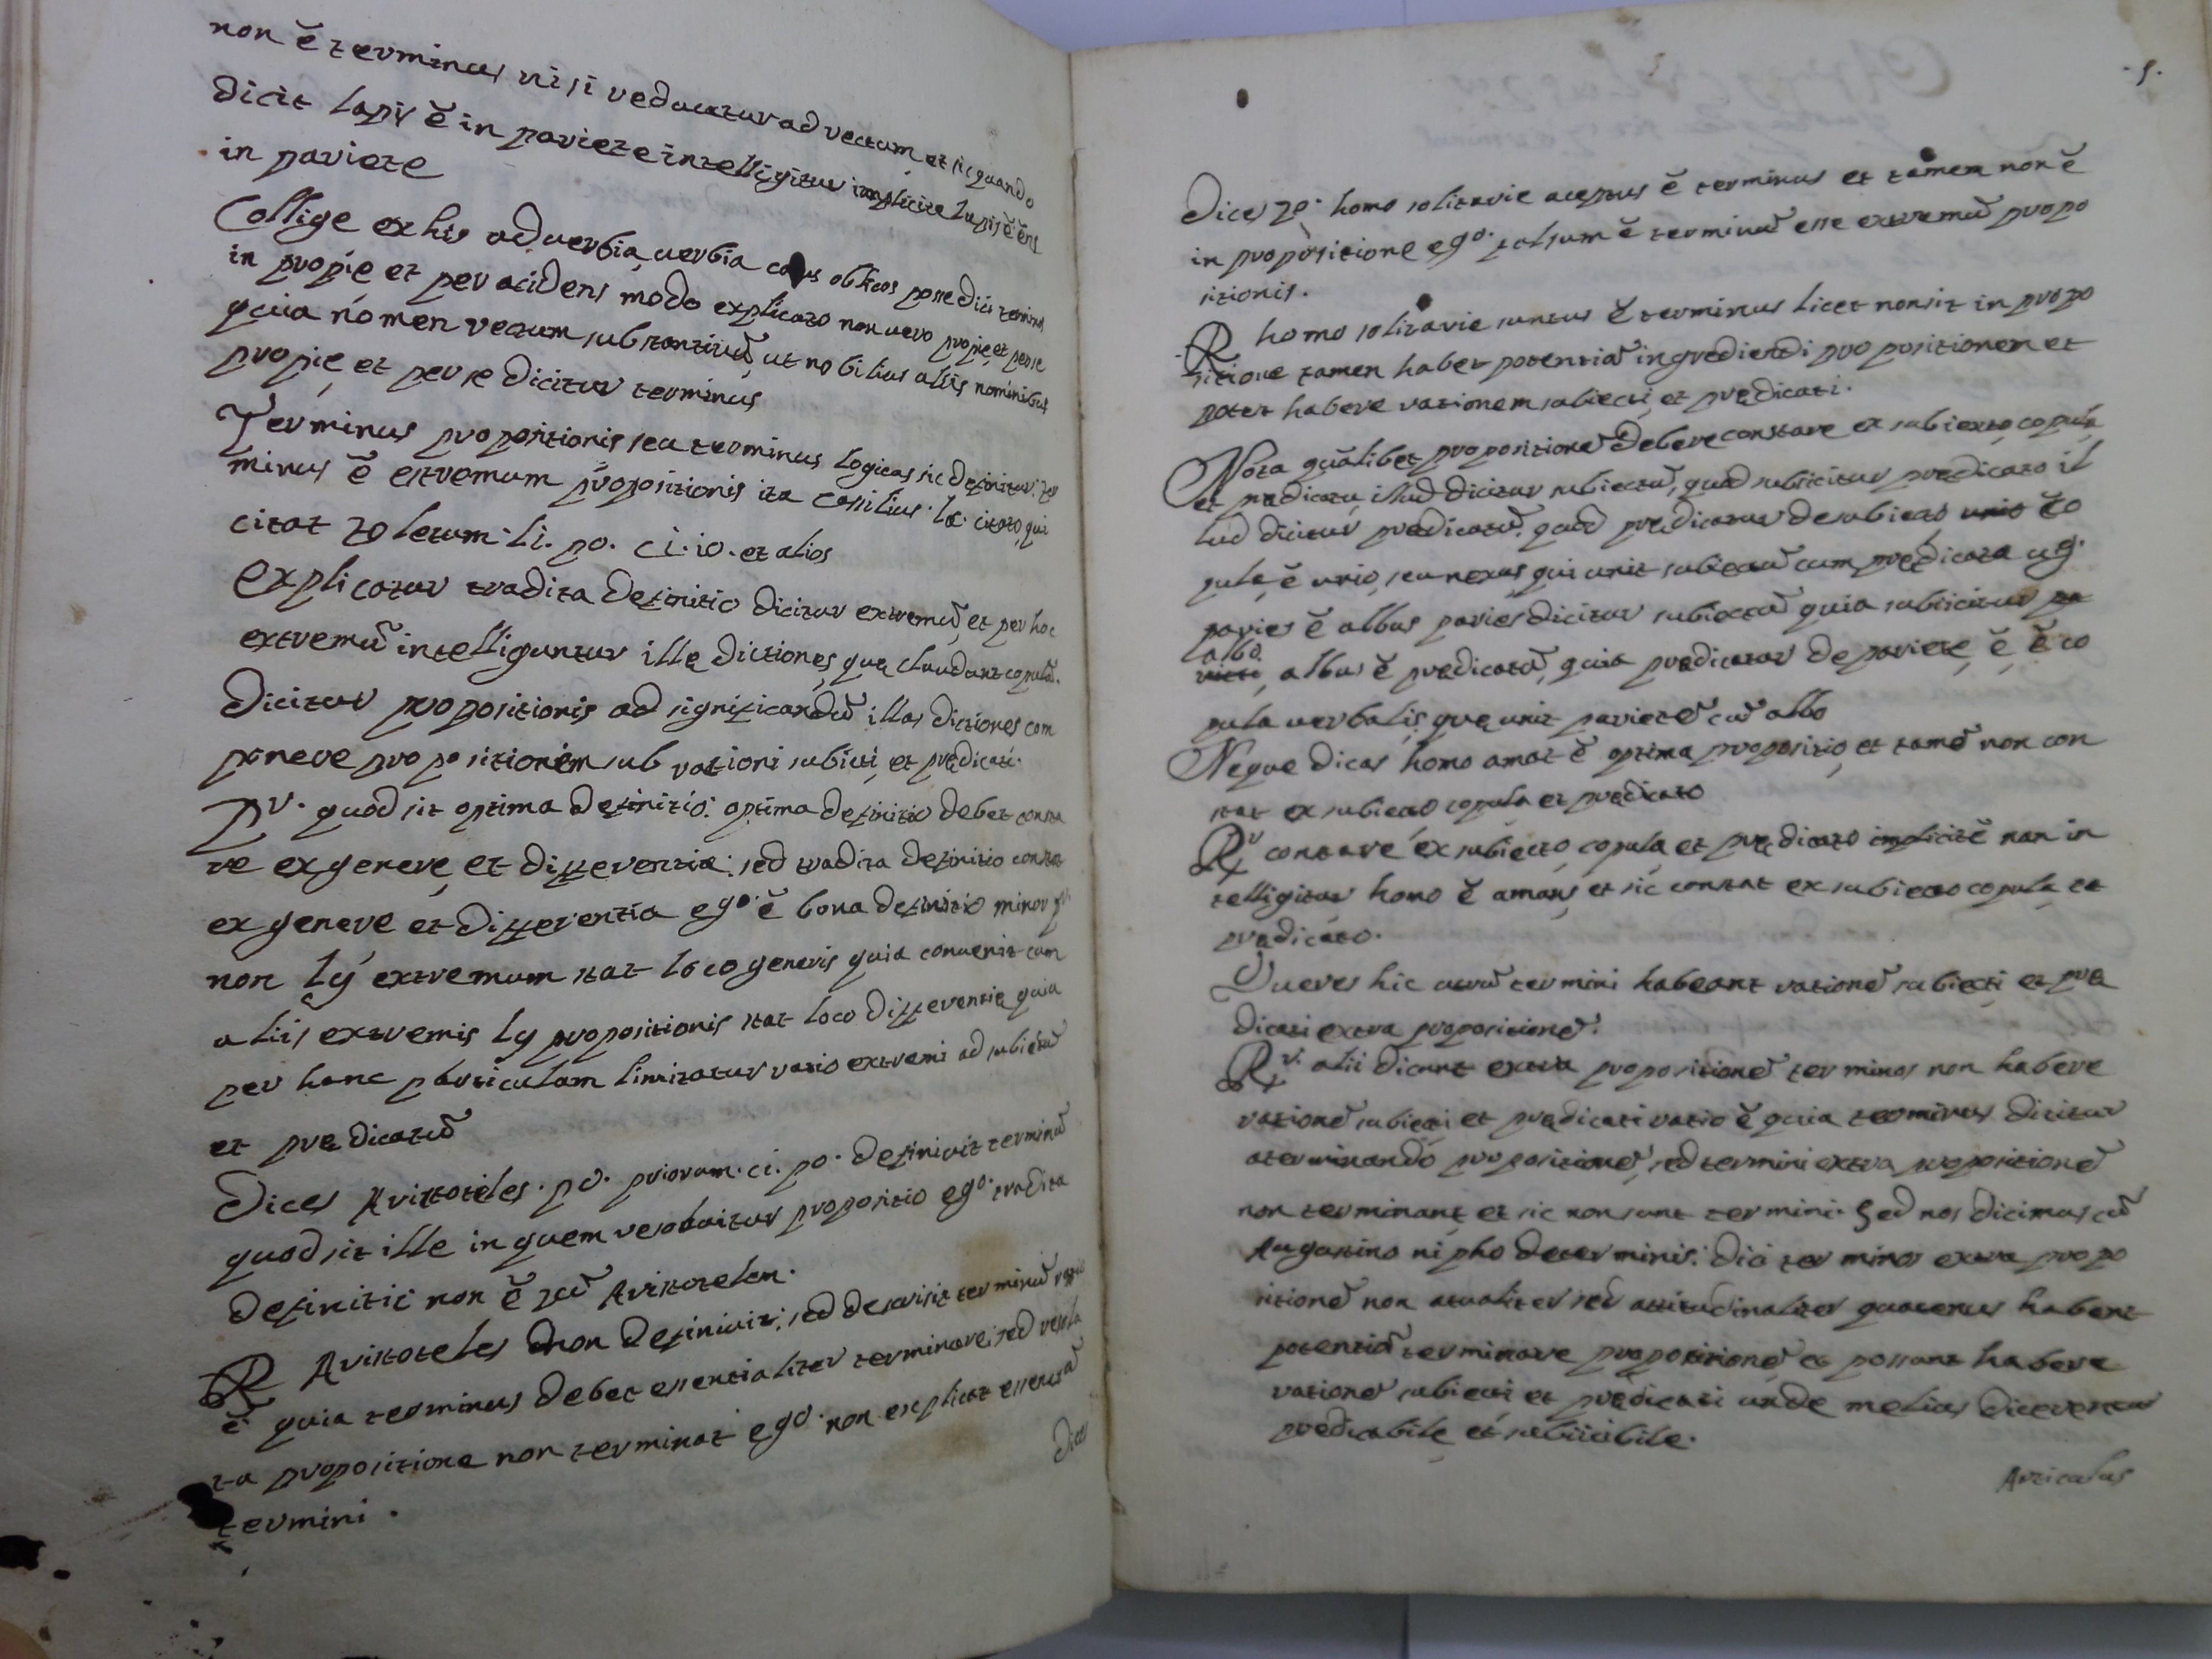 non ẽ terminus nisi reducatur ad rectum, et sic quando
dicit lapis ẽ in pariete intelligitur implicite lapis ẽ ens
in pariete
Collige ex his adverbia, verbia casus oblicos posse dici terminos
in propie et per acidens modo explicato non uero propie, et per se
quia nomen rectum substantiuũ, ut nobilius aliis nominibus
propie, et per se dicitur terminus
Terminus propositionis seu terminus logicus sic definitur: ter
minus ẽ extremum propositionis ita Casilius. lo. citato, qui
citat toletum. li. po. ci. io. et alios
explicatur tradita definitio dicitur extremũ, et per hoc
extremũ intelliguntur illę dictiones, quę claudunt copulã.
dicitur propositionis ad significandũ illas dictiones com
ponere propositionem sub rationi subicti, et prędicati.
Pr. quod sit optima definitio: optima definitio debet consta
re ex genere, et differentia: sed tradita definitio constat
ex genere et differentia ego. ẽ bona definitio minor pr.
non lÿ extremum stat loco generis quia conuenit cum
aliis extremis ly propositionis stat loco differentię quia
per hanc particulam limitatur ratio extremi ad subiectũ
et prędicatũ
Dices Aristoteles. po. priorum. ci. po. definivit terminũ
quod sit ille in quem resolvitur propositio ego. tradita
definitio non ẽ scũ Aristotelem.
R Aristoteles non definiuit, sed descrisit terminũ ratio
ẽ quia terminus debet essentialiter terminare, sed resolu
ta propositione non terminat ego. non explicat essensiã
termini.
dices
.5.
Dices 2o. homo solitarie aceptus ẽ terminus et tamen non ẽ
in propositione ego. falsum ẽ terminũ esse extremũ propo
sitionis.
R homo solitarie suntus ẽ terminus licet non sit in propo
sitione tamen habet potentiã ingrediendi propositionem et
potest habere rationem subiecti, et prędicati.
Nota qualibet propositionẽ debere constare ex subiecto, copula,
et predicato, illud dicitur subiectũ, quod subiicitur predicato il
lud dicitur predicatũ, quod prędicatur de subiecto unio co
pula, ẽ unio, seu nexus, qui unit subiectũ cum predicato ug.
paries ẽ albus paries dicitur subiectũ quia subiicitur pa
albo
rieti, albus ẽ predicatũ, quia predicatur de pariete, ẽ, ẽ co
pula uerbalis, quę unit parietẽ cũ albo
Neque dicas homo amat ẽ optima propositio, et tamẽ non con
stat ex subiecto copula et prędicato
Rr constare ex subiecto, copula, et prędicato implicitẽ nan in
telligitur homo ẽ amans, et sic constat ex subiecto copula, et
prędicato.
Queres hic utrũ termini habeant rationẽ subiecti, et prę
dicati extra propositionẽ.
Rr. alii dicunt extra propositionẽ terminos non habere
rationẽ subiecti et prędicati ratio ẽ quia terminus dicitur
a terminando propositionẽ, sed termini extra propositionẽ
non terminant, et sic non sunt termini. Sed nos dicimus cũ
Augustino nipho de terminis: dici terminos extra propo
sitionẽ non atualiter sed attitudinaliter quatenus habent
potentiã terminare propositionẽ, et possant habere
rationẽ subiecti et prędicati unde melius dicerentur
predicabile, et subiicibile.
Articulus